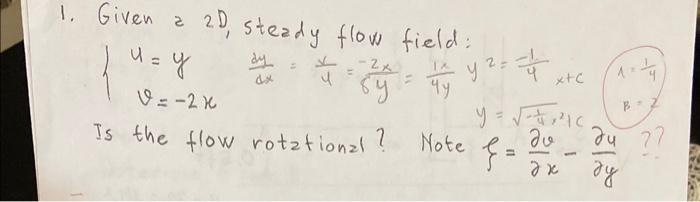 1. Given a 2D, steady flow field:
{ u = y
v = -2x
dy/dx = v/u = -2x/8y = 1x/4y
y² = -1/4 x+C
y = √-1/4 x²+C
A = 1/4
B = 2
Is the flow rotational? Note ξ = ∂v/∂x - ∂u/∂y ??